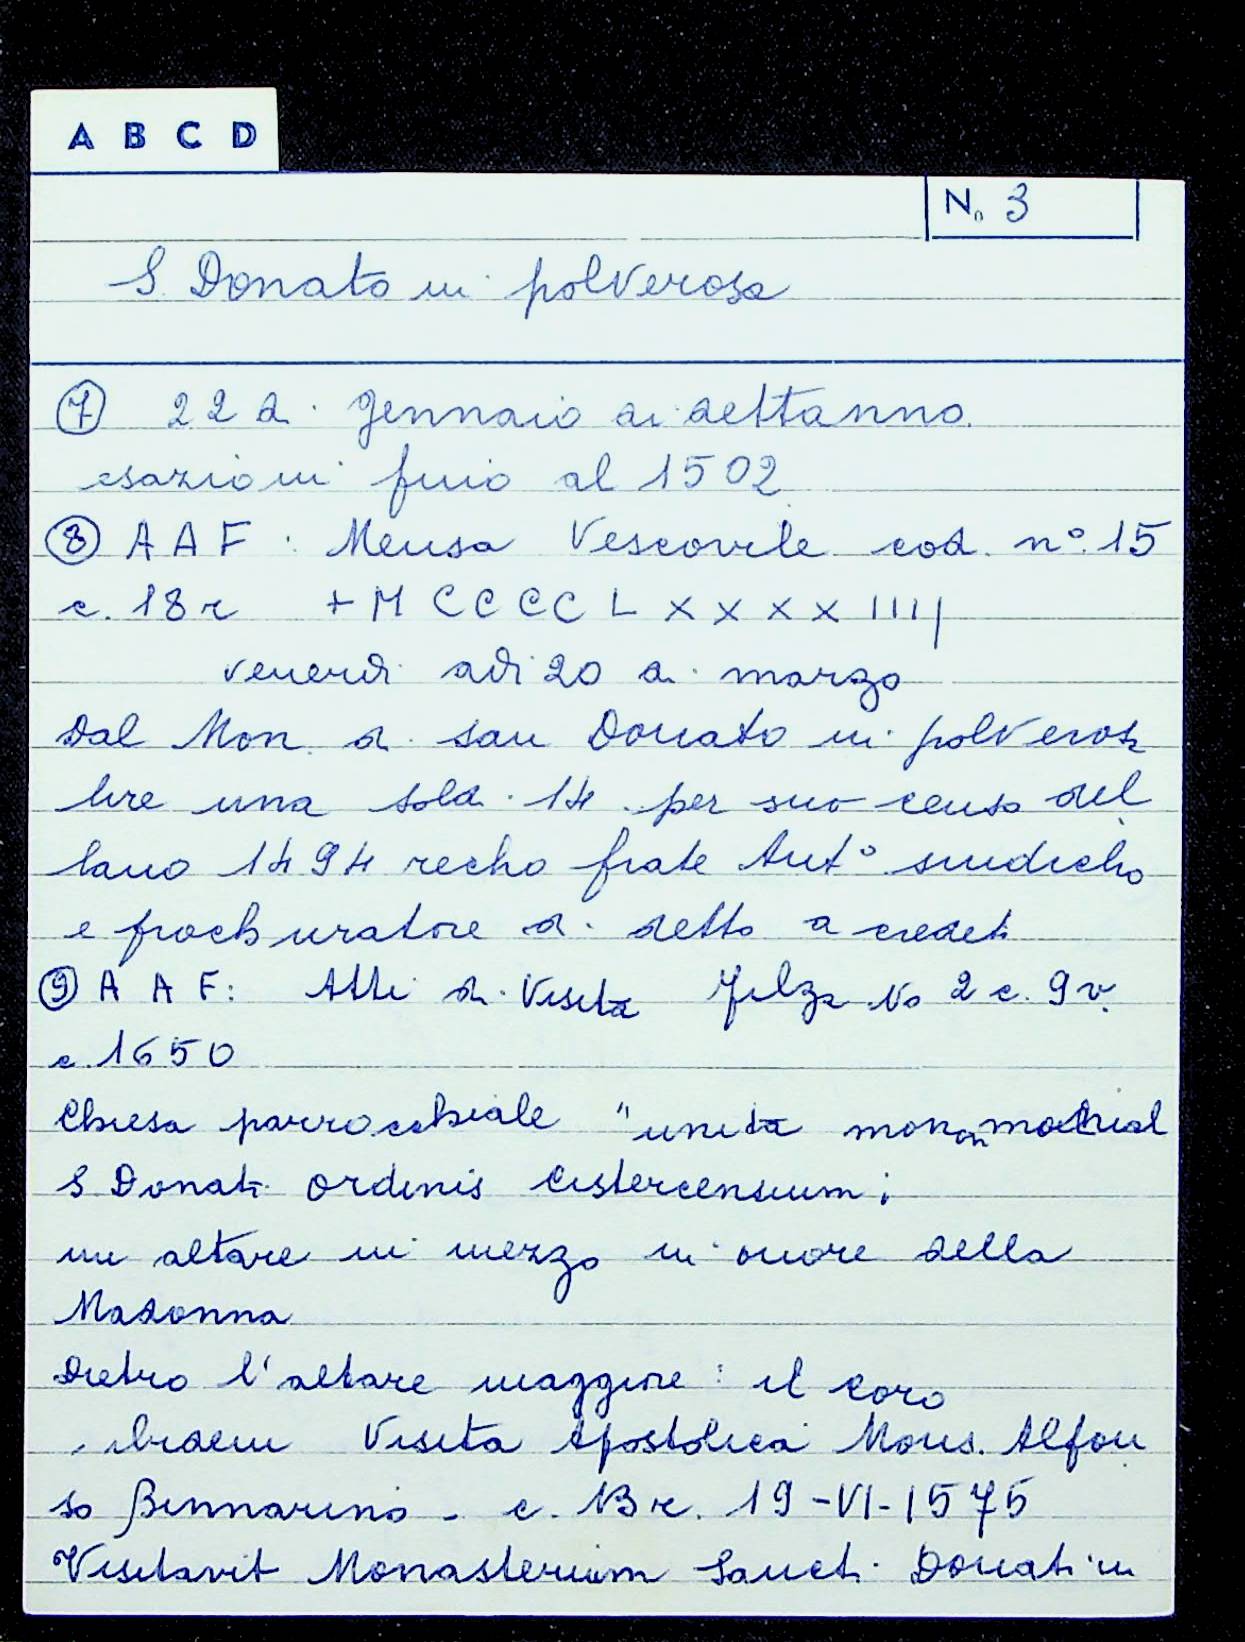 A B C D
No 3
S. Donato in polverosa
7 22 di gennaio di dettanno.
esazioni fino al 1502
8 A A F : Mensa Vescovile cod. n° 15
c. 18 r + M CCCC L X X X X IIII
venerdi adi 20 di marzo
Dal Mon. di san Donato in polverosa
lire una sold. 14 per suo censo del
lano 1494 recho frate Ant° sindicho
e prochuratore di detto a credeti
9 A A F: Atti di Visita Filza No 2 c. 9 v.
c. 1650
Chiesa parrocchiale "unita mon
S Donati ordinis Cistercensium;
un altare in mezzo in onore della
Madonna
Dietro l'altare maggiore : il coro
ibidem Visita Apostolica Mons. Alfon
so Binnarino - c. 13 r. 19-VI-1575
Visitavit Monasterium Sancti Donati in